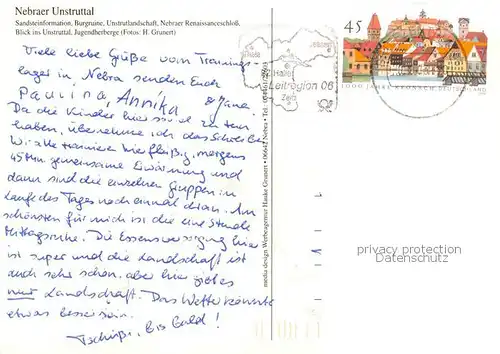 Nebraer Unstruttal
Sandsteininformation, Burgruine, Unstrutlandschaft, Nebraer Renaissanceschloß,
Blick ins Unstruttal, Jugendherberge (Fotos: H. Grunert)
Viele liebe Grüße vom Trainings-
lager in Nebra senden Euch
Paulina, Annika & Jana.
Da die Kinder hier so viel zu tun
haben, übernehme ich das Schreiben.
Wir alle trainieren hier fleißig, morgens
45 Min. gemeinsame Erwärmung und
dann sind die einzelnen Gruppen im
Laufe des Tages noch einmal dran. Am
schönsten für mich ist die eine Stunde
Mittagsruhe. Die Essensversorgung hier
ist super und die Landschaft ist
auch sehr schön, aber hier gibt es
nur Landschaft. Das Wetter könnte
etwas besser sein.
Tschüß, bis bald!
media design Werbeagentur Hauke Grunert • 06642 Nebra •
Halle
Leitregion 06
Zeitz
45
1000 JAHRE KRONACH DEUTSCHLAND
privacy protection
Datenschutz